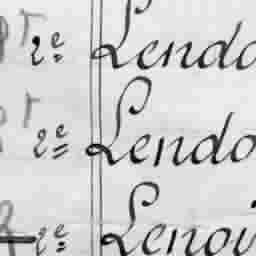 2e Lendo
2e Lendo
2e Lenoi